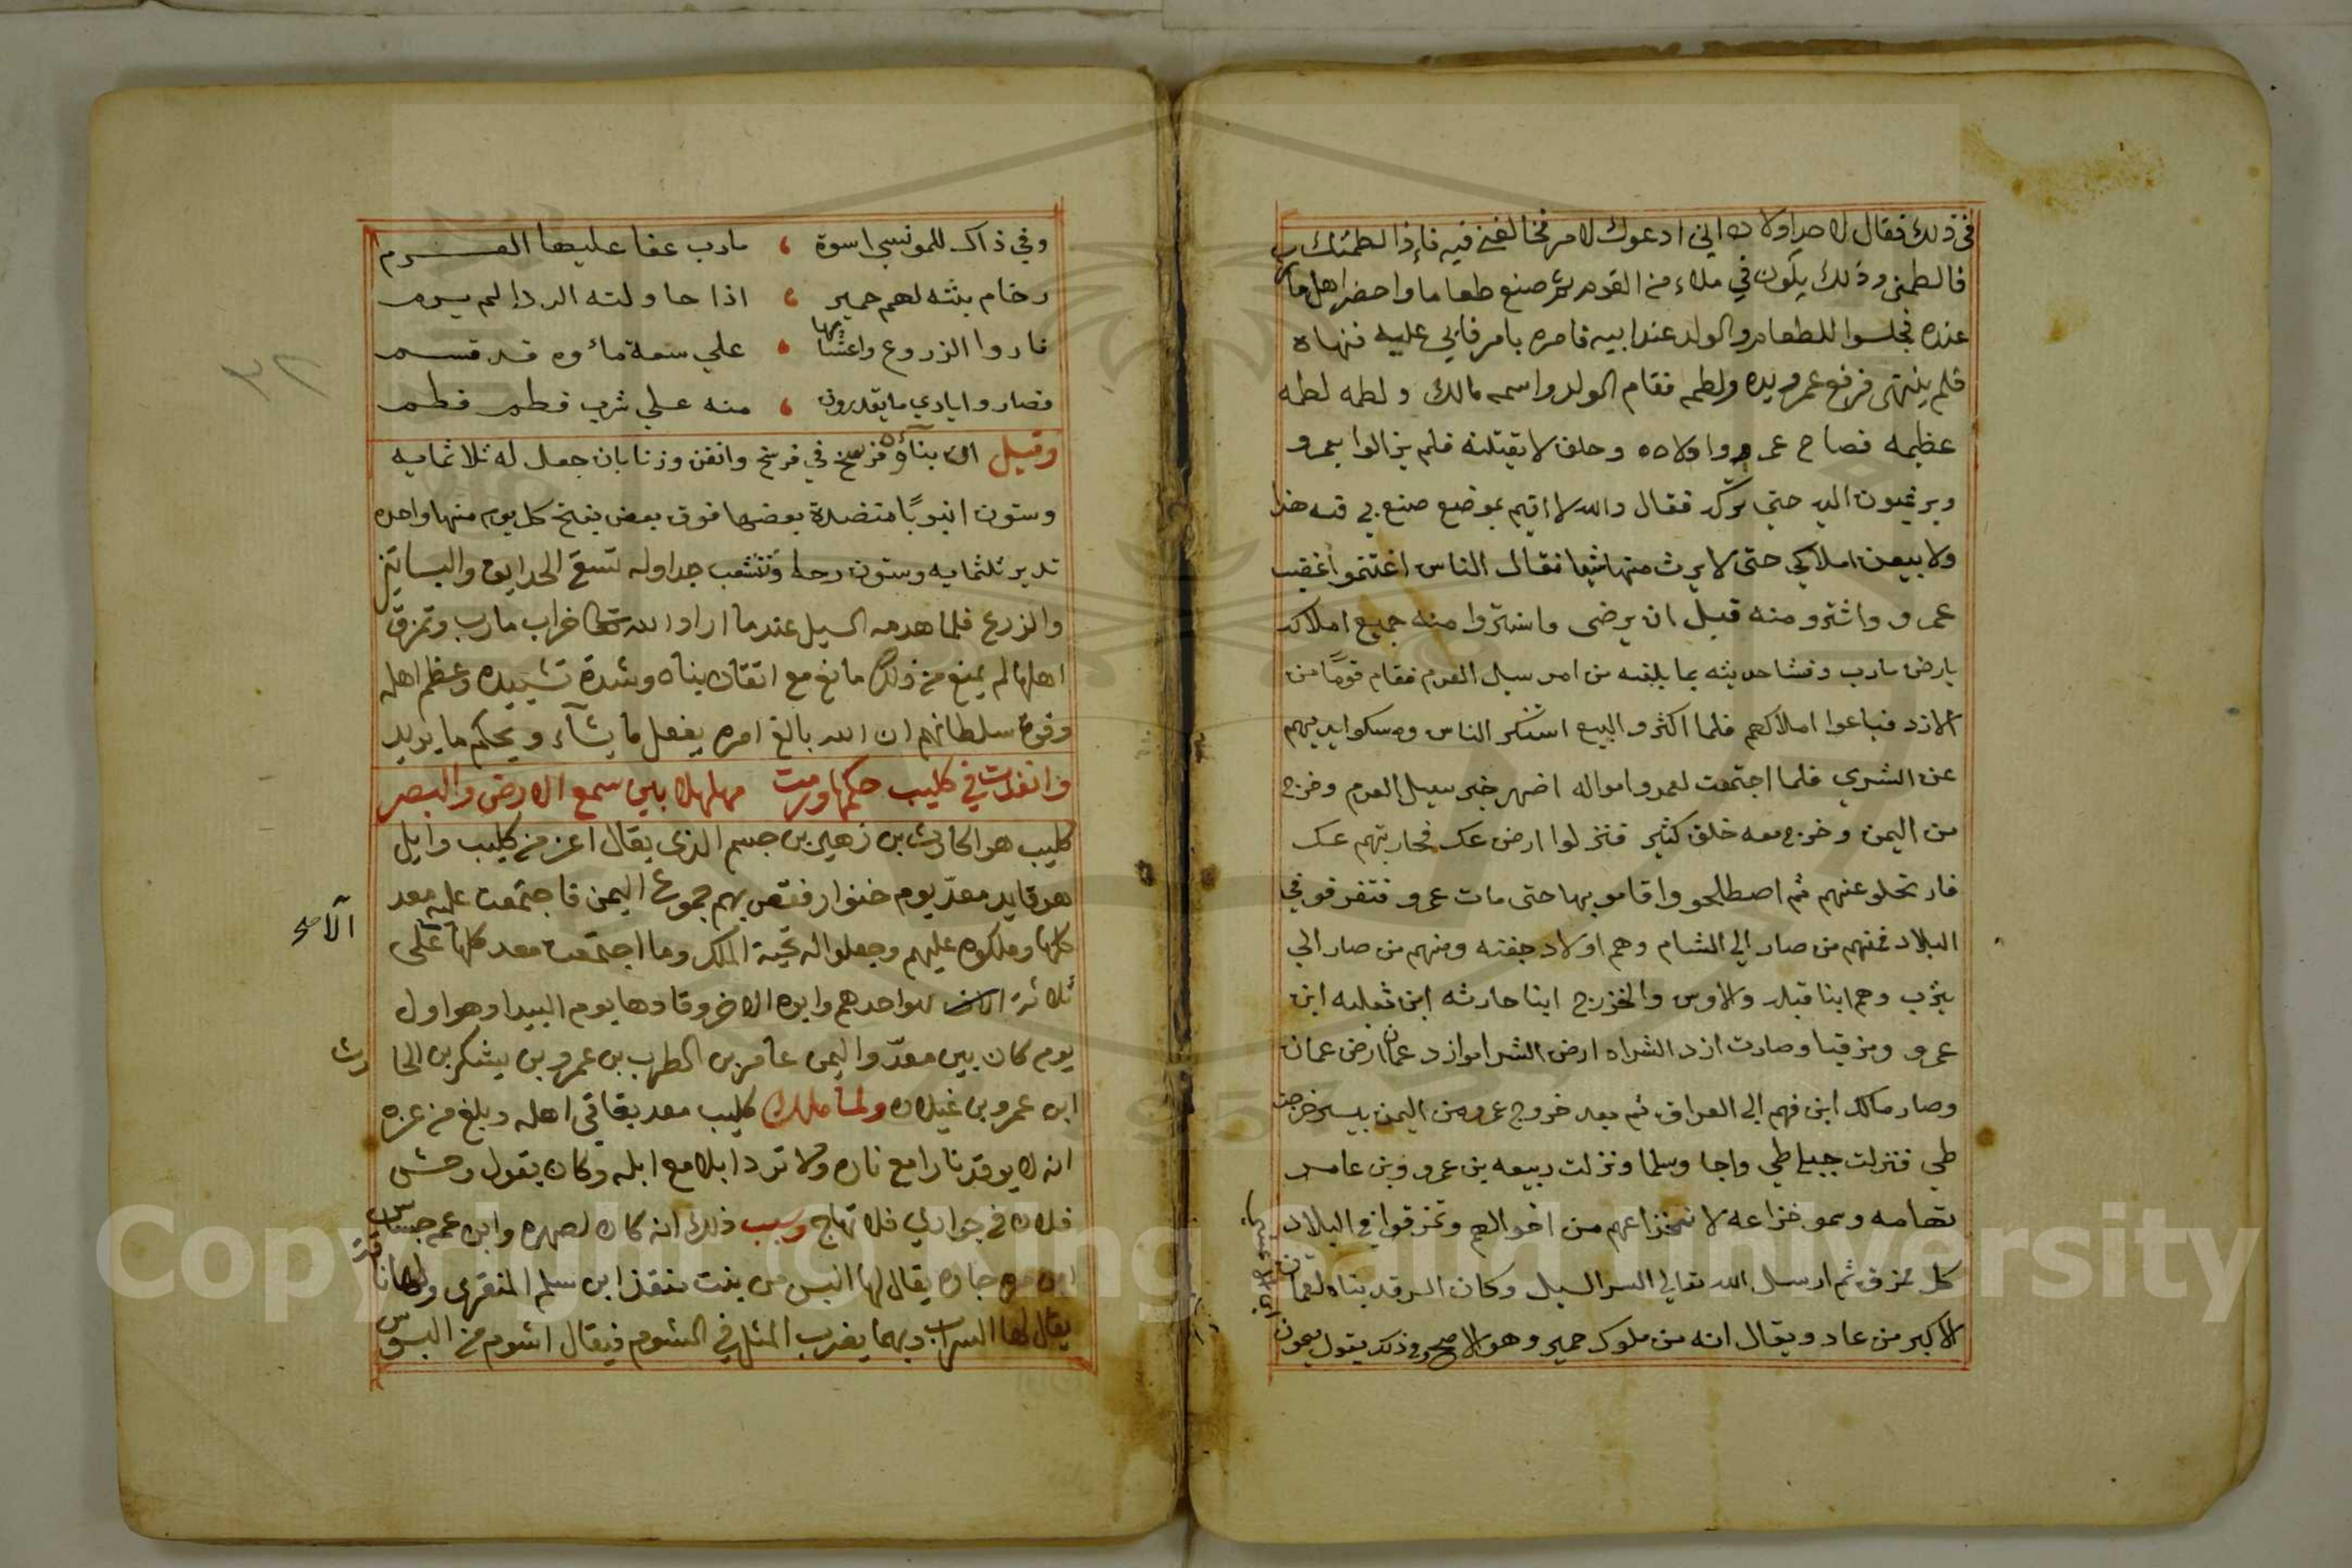 في ذلك فقال لاحد اولاده اني ادعوك لامر فخالفني فيه فاذا لطمتك
فالطمني وذلك يكون في ملاء من القوم ثم صنع طعاما واحضر اهل مارب
عنده فجلسوا للطعام والولد عند ابيه فامره بامر فابي عليه فنهاه
فلم ينتهي فرفع عمرو يده ولطمه فقام الولد واسمه مالك ولطمه لطمه
عظيمه فصاح عمرو واولاده وحلف لا يقتلنه فلم يزالوا بعمرو
ويرغبون اليه حتي تركه فقال والله لا اقيم بموضع صنع بي فيه هذا
ولا بيعن املاكي حتى لا يرث منها شيا فقال الناس اغتنموا غضب
عمرو واشترو منه قبل ان يرضى واشتروا منه جميع املاكه
بارض مارب وفشا حديثه بما بلغه من امر سيل العرم فقام قوما من
الازد فباعوا املاكهم فلما اكثرو البيع استنكر الناس ومسكوا ايديهم
عن الشري فلما اجتمعت لعمرو امواله اضهر خبر سيل العرم وخرج
من اليمن وخرج معه خلق كثير فنزلوا ارض عك فحاربتهم عك
فارتحلو عنهم ثم اصطلحو واقامو بها حتى مات عمرو فتفرقو في
البلاد فمنهم من صار الي الشام وهم اولاد جفنه ومنهم من صار الي
يثرب وهم ابنا قيله والاوس والخزرج ابنا حارثه ابن ثعلبه ابن
عمرو ومزقيا وصارت ازد الشراه ارض الشراه وازد عمان ارض عمان
وصار مالك ابن فهم الي العراق ثم بعد خروج عمرو من اليمن بيسير خرجت
طي فنزلت جبلي طي واجا وسلما ونزلت ربيعه بن عمرو وبن عامر
تهامه وسمو خزاعه لانخزاعهم من اخوالهم وتمزقوا في البلاد
كل ممزق ثم ارسل الله تعالي السد السيل وكان السد قد بناه لقمان
الاكبر من عاد ويقال انه من ملوك حمير وهو الاصح وفي ذلك يقول ميمون
وفي ذاك للمونسي اسوة ، مارب عفا عليها العرم
رخام بنته لهم حمير ، اذا حاولته الردا لم يرم
فاروا الزروع واعنابها ، علي سعة ماؤه قد قسم
فصاروا ايادي ما يقدرون ، منه علي شرب فطم فطم
وقيل ان بناؤه فرسخ في فرسخ واتقن وزنا بان جعل له ثلاثمايه
وستون انبوبًا متنضدة بعضها فوق بعض يفتح كل يوم منها واحده
تدير ثلثمايه وستون رحا وتتشعب جداوله لتسقي الحدايق والبساتين
والزرع فلما هدمه السيل عندما اراد الله تعالى خراب مارب وتمزق
اهلها لم يمنع من ذلك مانع مع اتقان بناه وشدة تشييده وعظم اهله
وقوة سلطانهم ان الله بالغ امره يفعل ما يشآء ويحكم ما يريد
وانفذت في كليب حكمها ورمت مهلهلا بين سمع الارض والبصر
كليب هو الحارث بن زهير بن جسم الذي يقال اعز من كليب وايل
هو قايد معدّ يوم خنوار ففض بهم جموع اليمن فاجتمعت عليه معد
كلها وملكوه عليهم وجعلوا له تحية الملك وما اجتمعت معد كلها على
ثلاثة هواحدهم وابوه الاخر وقادها يوم البيدا وهو اول
يوم كان بين معدّ واليمن عامر بن الطرب بن عمرو بن يشكر بن الحارث
ابن عمرو بن غيلان ولما ملك كليب معد بقاقي اهله وبلغ من عزه
انه لا يوقد نارا مع ناره ولا ترد ابلا مع ابله وكان يقول وحش
فلان في جواري فلا تهاج وسبب ذلك انه كان لصهره وابن عمه جساس
ابن مره جاره يقال لها البس من بنت منقذ ابن سلم المنقري ولها ناقة
يقال لها السراب وبهما يضرب المثل في الشوم فيقال اشوم من البسوس